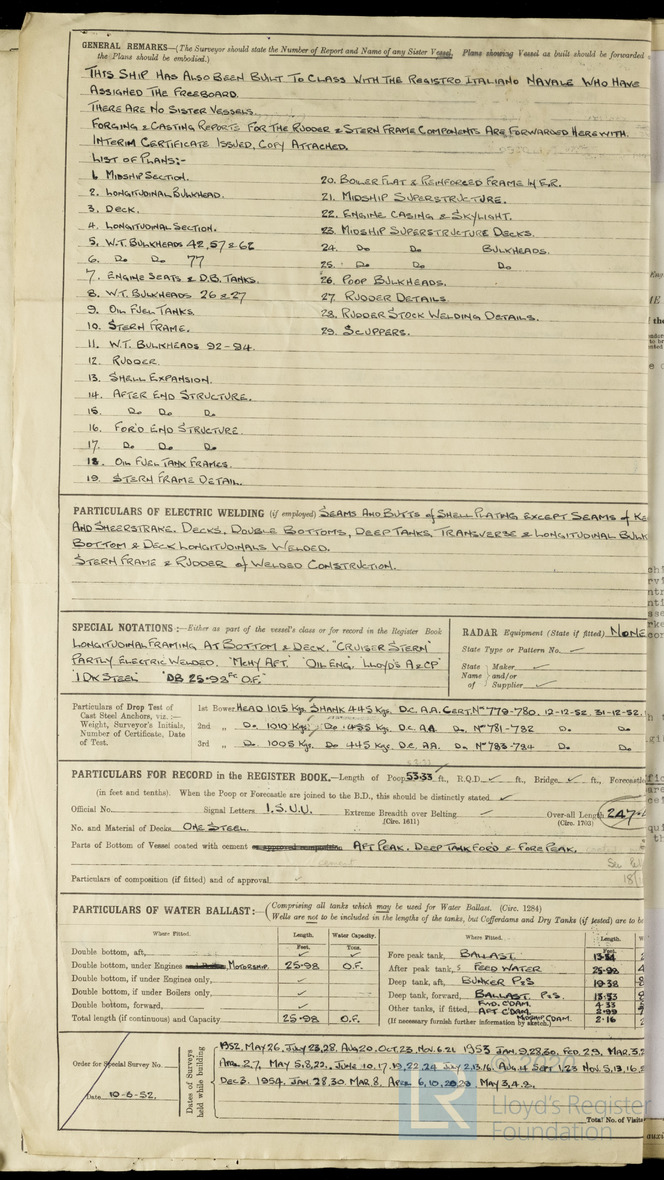 GENERAL REMARKS—(The Surveyor should state the Number of Report and Name of any Sister Vessel. Plans showing Vessel as built should be forwarded
the Plans should be embodied.)
THIS SHIP HAS ALSO BEEN BUILT TO CLASS WITH THE REGISTRO ITALIANO NAVALE WHO HAVE
ASSIGNED THE FREEBOARD.
THERE ARE NO SISTER VESSELS.
FORGING & CASTING REPORTS FOR THE RUDDER & STERN FRAME COMPONENTS ARE FORWARDED HEREWITH.
INTERIM CERTIFICATE ISSUED. COPY ATTACHED.
LIST OF PLANS:-
1. MIDSHIP SECTION. 20. BOILER FLAT & REINFORCED FRAME IN E.R.
2. LONGITUDINAL BULKHEAD. 21. MIDSHIP SUPERSTRUCTURE.
3. DECK. 22. ENGINE CASING & SKYLIGHT.
4. LONGITUDINAL SECTION. 23. MIDSHIP SUPERSTRUCTURE DECKS.
5. W.T. BULKHEADS 42, 57 & 62 24. Do Do BULKHEADS.
6. Do Do 77 25. Do Do Do
7. ENGINE SEATS & D.B. TANKS. 26. POOP BULKHEADS.
8. W.T. BULKHEADS 26 & 27 27. RUDDER DETAILS.
9. OIL FUEL TANKS. 28. RUDDER STOCK WELDING DETAILS.
10. STERN FRAME. 29. SCUPPERS.
11. W.T. BULKHEADS 92-94.
12. RUDDER.
13. SHELL EXPANSION.
14. AFTER END STRUCTURE.
15. Do Do Do
16. FOR'D END STRUCTURE.
17. Do Do Do
18. OIL FUEL TANK FRAMES.
19. STERN FRAME DETAIL.
PARTICULARS OF ELECTRIC WELDING (if employed) SEAMS AND BUTTS of SHELL PLATING EXCEPT SEAMS of
AND SHEERSTRAKE. DECKS, DOUBLE BOTTOMS, DEEP TANKS, TRANSVERSE & LONGITUDINAL BULK
BOTTOM & DECK LONGITUDINALS WELDED.
STERN FRAME & RUDDER of WELDED CONSTRUCTION.
SPECIAL NOTATIONS:—Either as part of the vessel's class or for record in the Register Book
LONGITUDINAL FRAMING AT BOTTOM & DECK. "CRUISER STERN"
PARTLY ELECTRIC WELDED. "MCHY AFT." "OIL ENG. LLOYD'S A & CP"
"1 DK STEEL" "DB 25·98 O.F."
RADAR Equipment (State if fitted) NONE
State Type or Pattern No.
State Name of { Maker and/or Supplier
Particulars of Drop Test of Cast Steel Anchors, viz.:— Weight, Surveyor's Initials, Number of Certificate, Date of Test.
1st Bower HEAD 1015 Kgs. SHANK 445 Kgs. D.C. A.A. CERT. Nº 779-780. 12-12-52. 31-12-52.
2nd „ Do 1010 Kgs. Do 455 Kgs. D.C. AA. Do Nº 781-782 Do Do
3rd „ Do 1005 Kgs. Do 445 Kgs. D.C. AA. Do Nº 783-784 Do Do
PARTICULARS FOR RECORD in the REGISTER BOOK.—Length of Poop 53·33 ft., R.Q.D. ft., Bridge ft., Forecastle
(in feet and tenths). When the Poop or Forecastle are joined to the B.D., this should be distinctly stated
Official No. Signal Letters I.S.U.U. Extreme Breadth over Belting (Circ. 1611) Over-all Length (Circ. 1703) 247
No. and Material of Decks ONE STEEL.
Parts of Bottom of Vessel coated with cement or approved composition AFT PEAK. DEEP TANK FOR'D & FORE PEAK.
Particulars of composition (if fitted) and of approval
PARTICULARS OF WATER BALLAST:—(Comprising all tanks which may be used for Water Ballast. (Circ. 1284)
Wells are not to be included in the lengths of the tanks, but Cofferdams and Dry Tanks (if tested) are to
Where Fitted. Length. Water Capacity. Where Fitted. Length.
Feet. Tons. Feet.
Double bottom, aft, Fore peak tank, BALLAST
Double bottom, under Engines MOTORSHIP. 25·98 O.F. After peak tank, FEED WATER 25·98
Double bottom, if under Engines only, Deep tank, aft, BUNKER P&S 19·38
Double bottom, if under Boilers only, Deep tank, forward, BALLAST P&S.
Double bottom, forward, Other tanks, if fitted, FWD. C'DAM. 4·33
AFT C'DAM. 2·99
Total length (if continuous) and Capacity 25·98 O.F. (If necessary furnish further information by sketch.) C'DAM. 2·16
Order for Special Survey No.
Date 10-6-52.
Dates of Surveys held while building
1952. MAY 26. JULY 23, 28. AUG 20. OCT 23. NOV. 6, 21 1953 JAN. 9, 28, 30. FEB. 2, 9. MAR. 3,
APR. 2, 7. MAY 5, 8, 22. JUNE 10, 17, 19, 22, 24 JULY 2, 13, 16. AUG. 14 SEPT 1, 23 NOV. 5, 13, 16,
DEC 3. 1954. JAN. 28, 30. MAR. 8. APRIL 6, 10, MAY 3, 4, 8.
Total No. of Visits
© 2020
LR
Lloyd's Register
Foundation